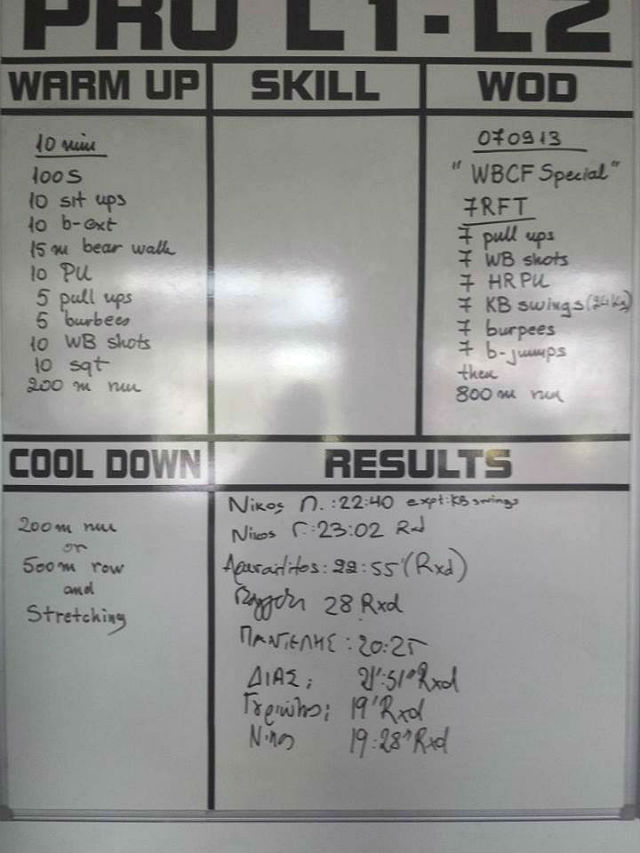 PRO L1-L2
WARM UP
10 min
100S
10 sit ups
10 b-ext
15m bear walk
10 PU
5 pull ups
5 burbees
10 WB shots
10 sqt
200 m run
SKILL
WOD
070913
"WBCF Special"
7RFT
7 pull ups
7 WB shots
7 HRPU
7 KB swings (24kg)
7 burpees
7 b-jumps
then
800m run
COOL DOWN
200m run
or
500m row
and
Stretching
RESULTS
Νικος Π.:22:40 expt:KB swings
Νικος Γ:23:02 Rd
:22:55'(Rxd)
28 Rxd
ΠΑΝΤΕΛΗΣ:20:25
ΔΙΑΣ: 21':51" Rxd
19' Rxd
Νικος 19:28" Rxd